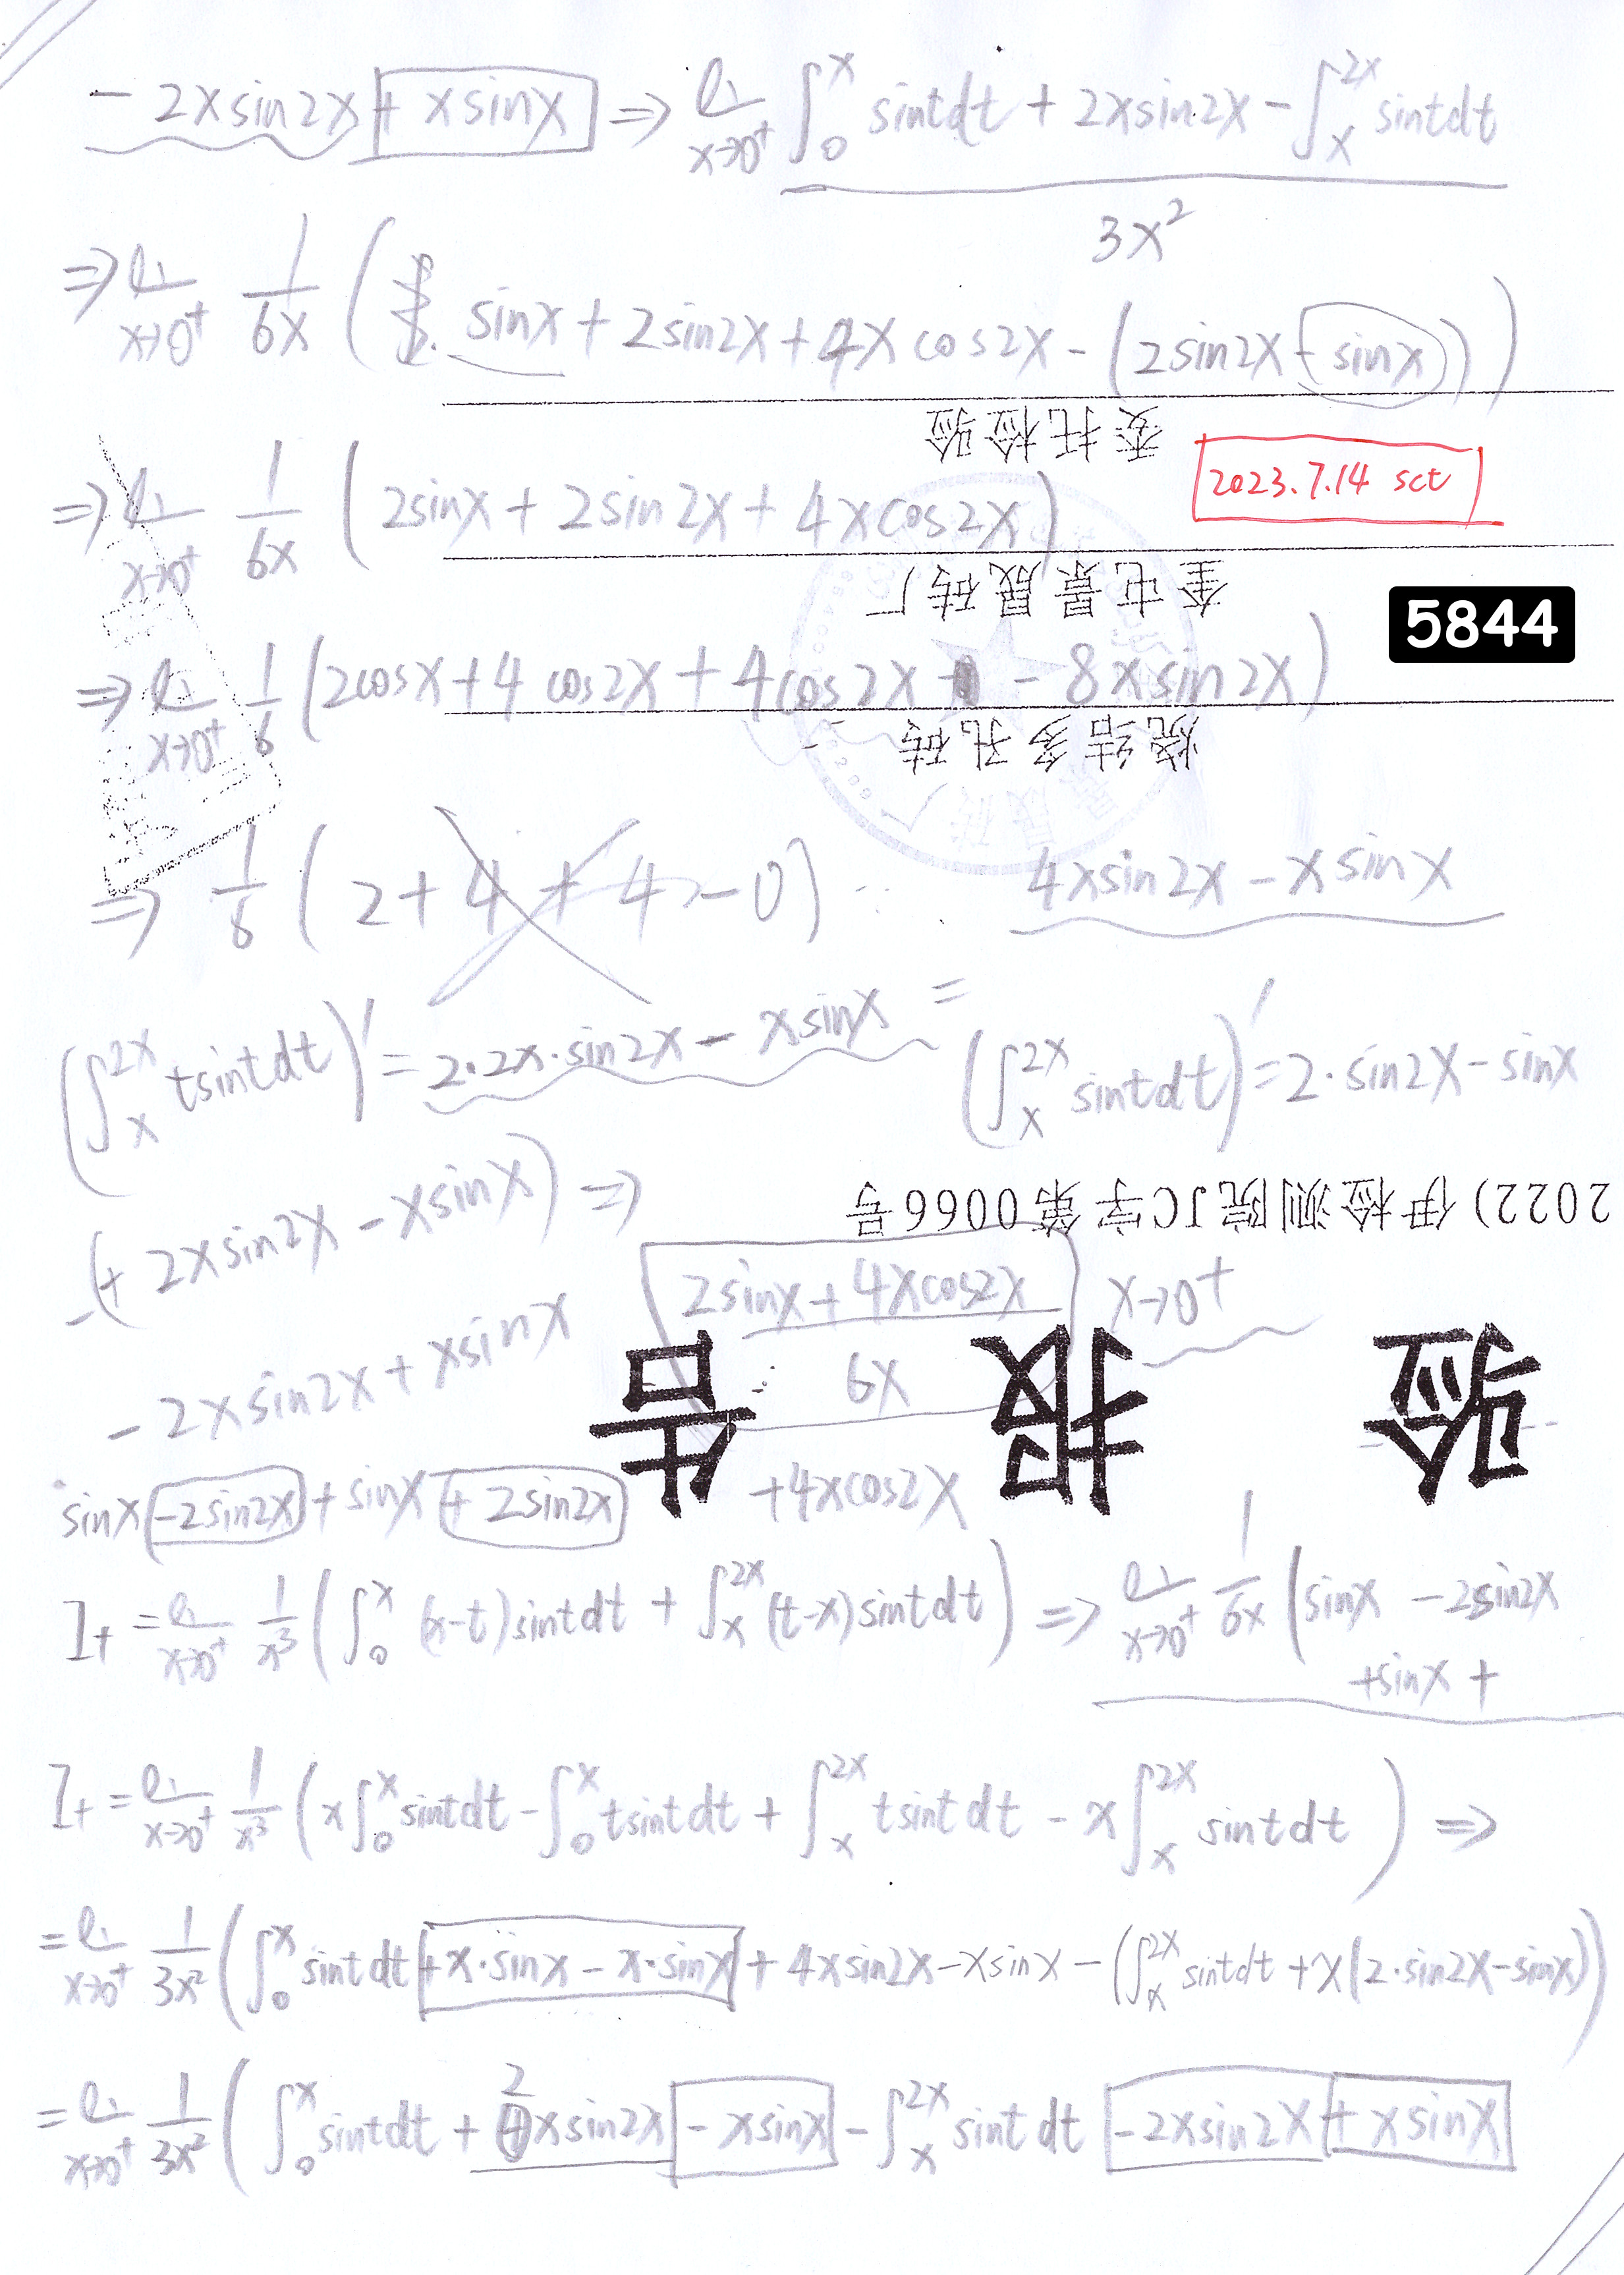 - 2xsin2x + xsinx ⇒ lim x→0⁺ (∫₀ˣ sintdt + 2xsin2x - ∫ₓ²ˣ sintdt) / 3x²
⇒ lim x→0⁺ 1/6x ( sinx + 2sin2x + 4xcos2x - (2sin2x - sinx))
委托检验
2023.7.14 sct
⇒ lim x→0⁺ 1/6x (2sinx + 2sin2x + 4xcos2x)
金屯景晟砖厂
5844
⇒ lim x→0⁺ 1/6 (2cosx + 4cos2x + 4cos2x - 8xsin2x)
烧结多孔砖
⇒ 1/6 (2+4+4-0)
4xsin2x - xsinx
(∫ₓ²ˣ tsintdt)′ = 2·2x·sin2x - xsinx =
(∫ₓ²ˣ sintdt)′ = 2·sin2x - sinx
2022)伊检测院JC字第0066号
-(+ 2xsin2x - xsinx) ⇒
(2sinx + 4xcos2x) / 6x x→0⁺
- 2xsin2x + xsinx
验 报 告
sinx - 2sin2x + sinx + 2sin2x + 4xcos2x
I₊ = lim x→0⁺ 1/x³ (∫₀ˣ (x-t)sintdt + ∫ₓ²ˣ (t-x)sintdt) ⇒ lim x→0⁺ 1/6x (sinx - 2sin2x
+sinx +
I₊ = lim x→0⁺ 1/x³ (x∫₀ˣ sintdt - ∫₀ˣ tsintdt + ∫ₓ²ˣ tsintdt - x∫ₓ²ˣ sintdt) ⇒
= lim x→0⁺ 1/3x² (∫₀ˣ sintdt + x·sinx - x·sinx + 4xsin2x - xsinx - (∫ₓ²ˣ sintdt + x(2·sin2x - sinx)))
= lim x→0⁺ 1/3x² (∫₀ˣ sintdt + 2xsin2x - xsinx - ∫ₓ²ˣ sintdt - 2xsin2x + xsinx